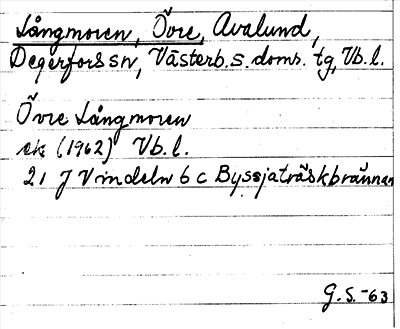 Långmoren, Övre, Avalund,
Degerfors sn, Västerb. s. doms. tg, Vb. l.
Övre Långmoren
ek (1962) Vb. l.
21 J Vindeln 6 c Byssjaträskbrännan
G. S. -63